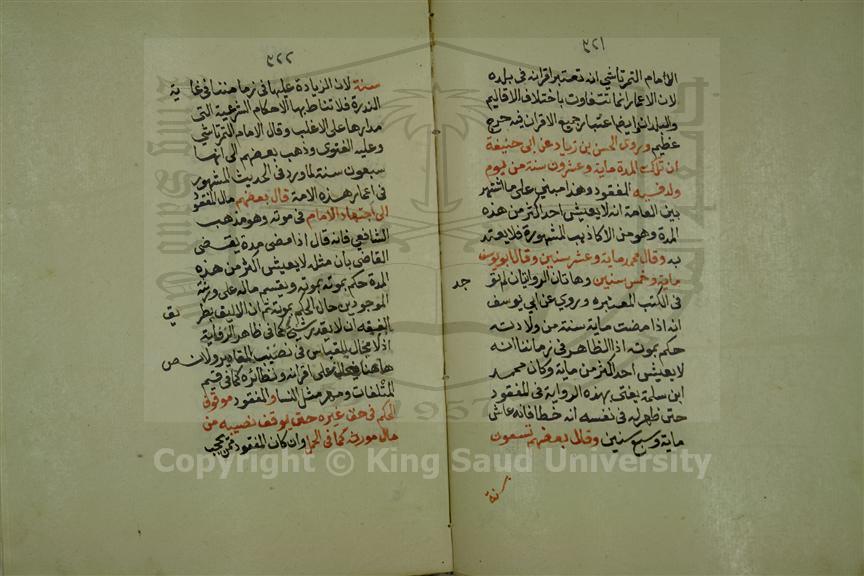 ٣٢١
الامام التمرتاشي انه تعتبر اقرانه في بلده
لان الاعمار انما تتفاوت باختلاف الاقاليم
والبلدان وايضا اعتبار جميع الاقران فيه حرج
عظيم وروى الحسن بن زياد عن ابي حنيفة
ان تلك المدة ماية وعشرون سنة من يوم
ولد فيه المفقود وهذا مبني على ما اشتهر
بين العامة انه لا يعيش احد اكثر من هذه
المدة وهو من الاكاذيب المشهورة فلا يعتد
به وقال محمد ماية وعشر سنين وقال ابو يوسف
ماية وخمس سنين وهاتان الروايتان لم تو
جد
في الكتب المعتبره وروي عن ابي يوسف
انه اذا مضت ماية سنة من ولادته
حكم بموته اذ الظاهر في زماننا انه
لا يعيش احد اكثر من ماية وكان محمد
ابن سلمة يفتي بهذه الرواية في المفقود
حتى ظهر له في نفسه انه خطا فانه عاش
ماية وسبع سنين وقال بعضهم تسعون
سنة
٣٢٢
سنة لان الزيادة عليها في زماننا في غا ية
الندرة فلا تناط بها الاحكام الشرعية التي
مدارها على الاغلب وقال الامام التمرتاشي
وعليه الفتوى وذهب بعضهم الى انها
سبعون سنة لما ورد في الحديث المشهور
في اعمار هذه الامة قال بعضهم مال المفقود
الى اجتهاد الامام في موته وهو مذهب
الشافعي فانه قال اذا مضى مدة يقضى
القاضي بان مثله لا يعيش اكثر من هذه
المدة حكم بموته بموته ويقسم ماله على ورثة
الموجودين حال الحكم بموته ثم ان الاليق بطر يق
الفقه ان لا يقدر بشي كما في ظاهر الرواية
اذ لا مجال للقياس في نصيب المقادير ولا نص
هاهنا على اقرانه ونظائره كما في قيم
المتلفات ومهر مثل النسا والمفقود موقوف
الحكم في حق غيره حتى يوقف نصيبه من
مال مورثه كما في الحمل وان كان المفقود ممن يحجب